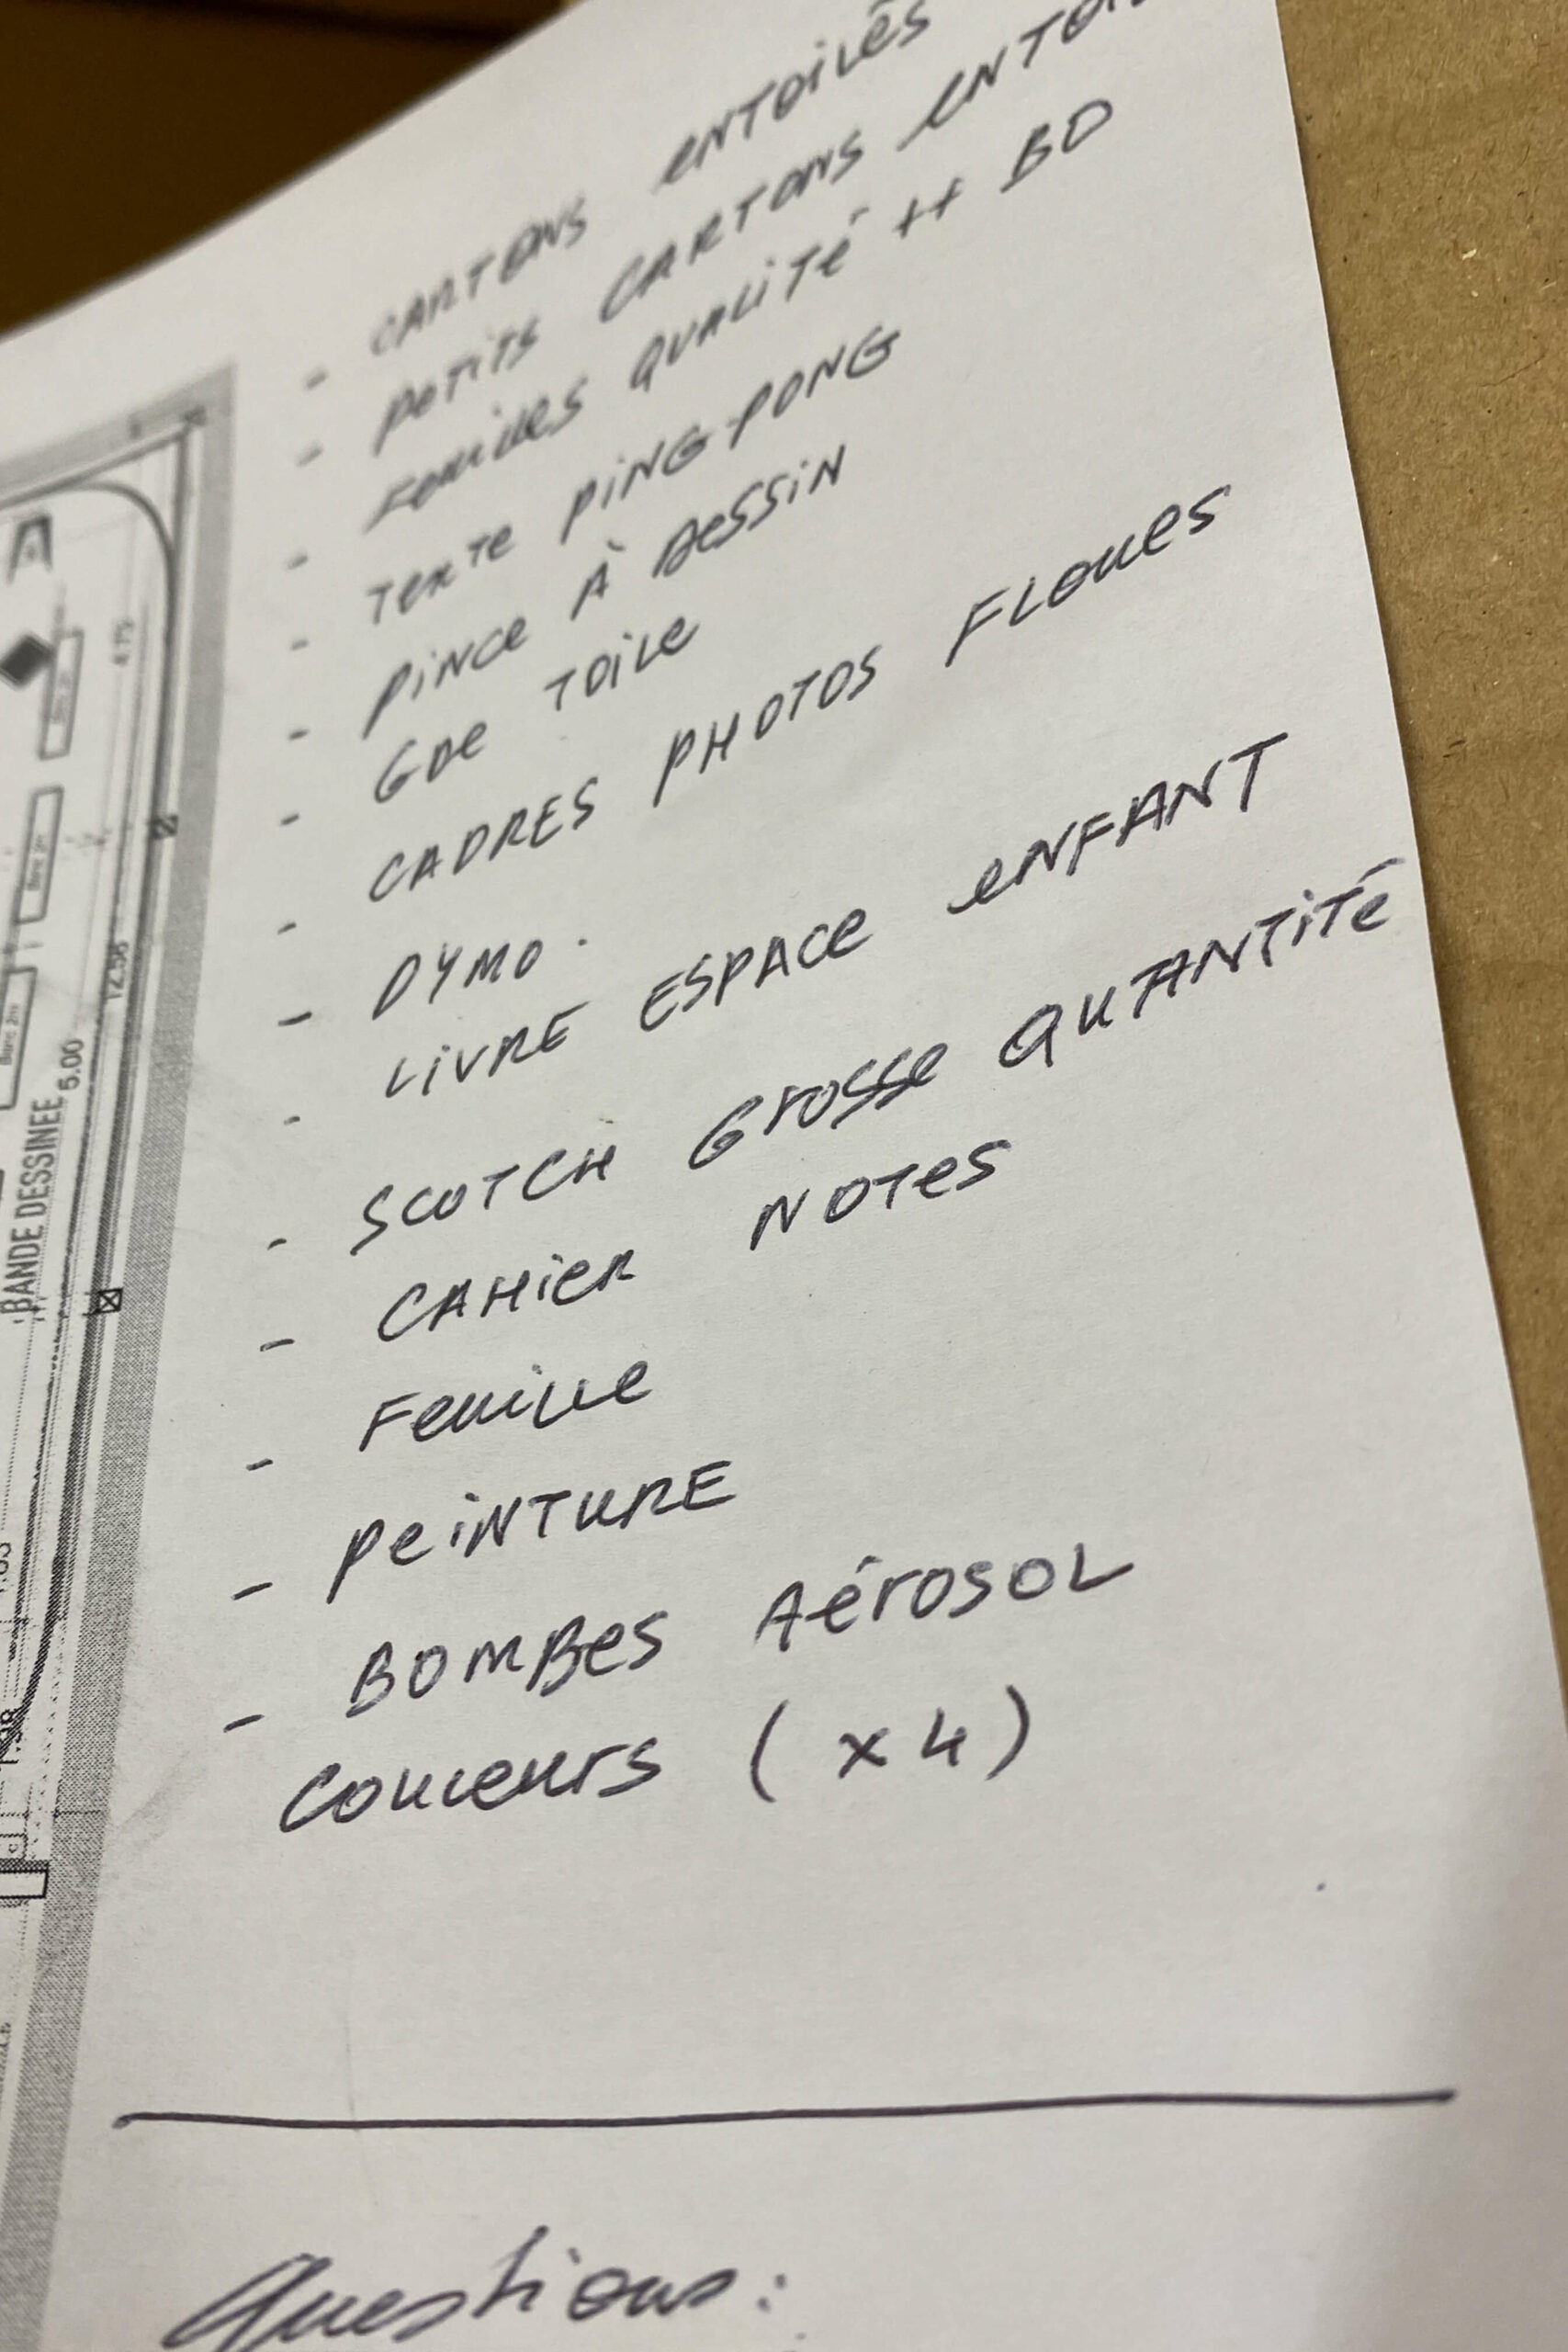 - CARTONS ENTOILÉS
- PETITS CARTONS
- FEUILLES QUALITÉ ++ BD
- TEXTE PING-PONG
- PINCE À DESSIN
- GDE TOILE
- CADRES PHOTOS FLOUES
- DYMO.
- LIVRE ESPACE ENFANT
- SCOTCH GROSSE QUANTITÉ
- CAHIER NOTES
- FEUILLE
- PEINTURE
- BOMBES AÉROSOL
COULEURS (x4)
Questions:
BANDE DESSINEE
5.00
12.56
4.75